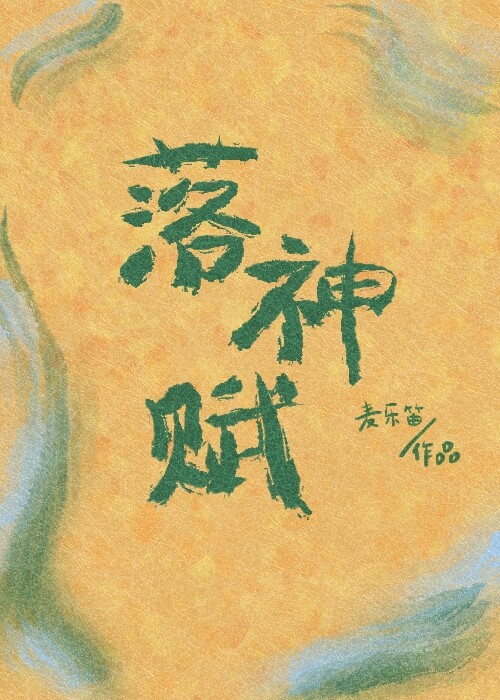 落神赋
麦乐笛
作品